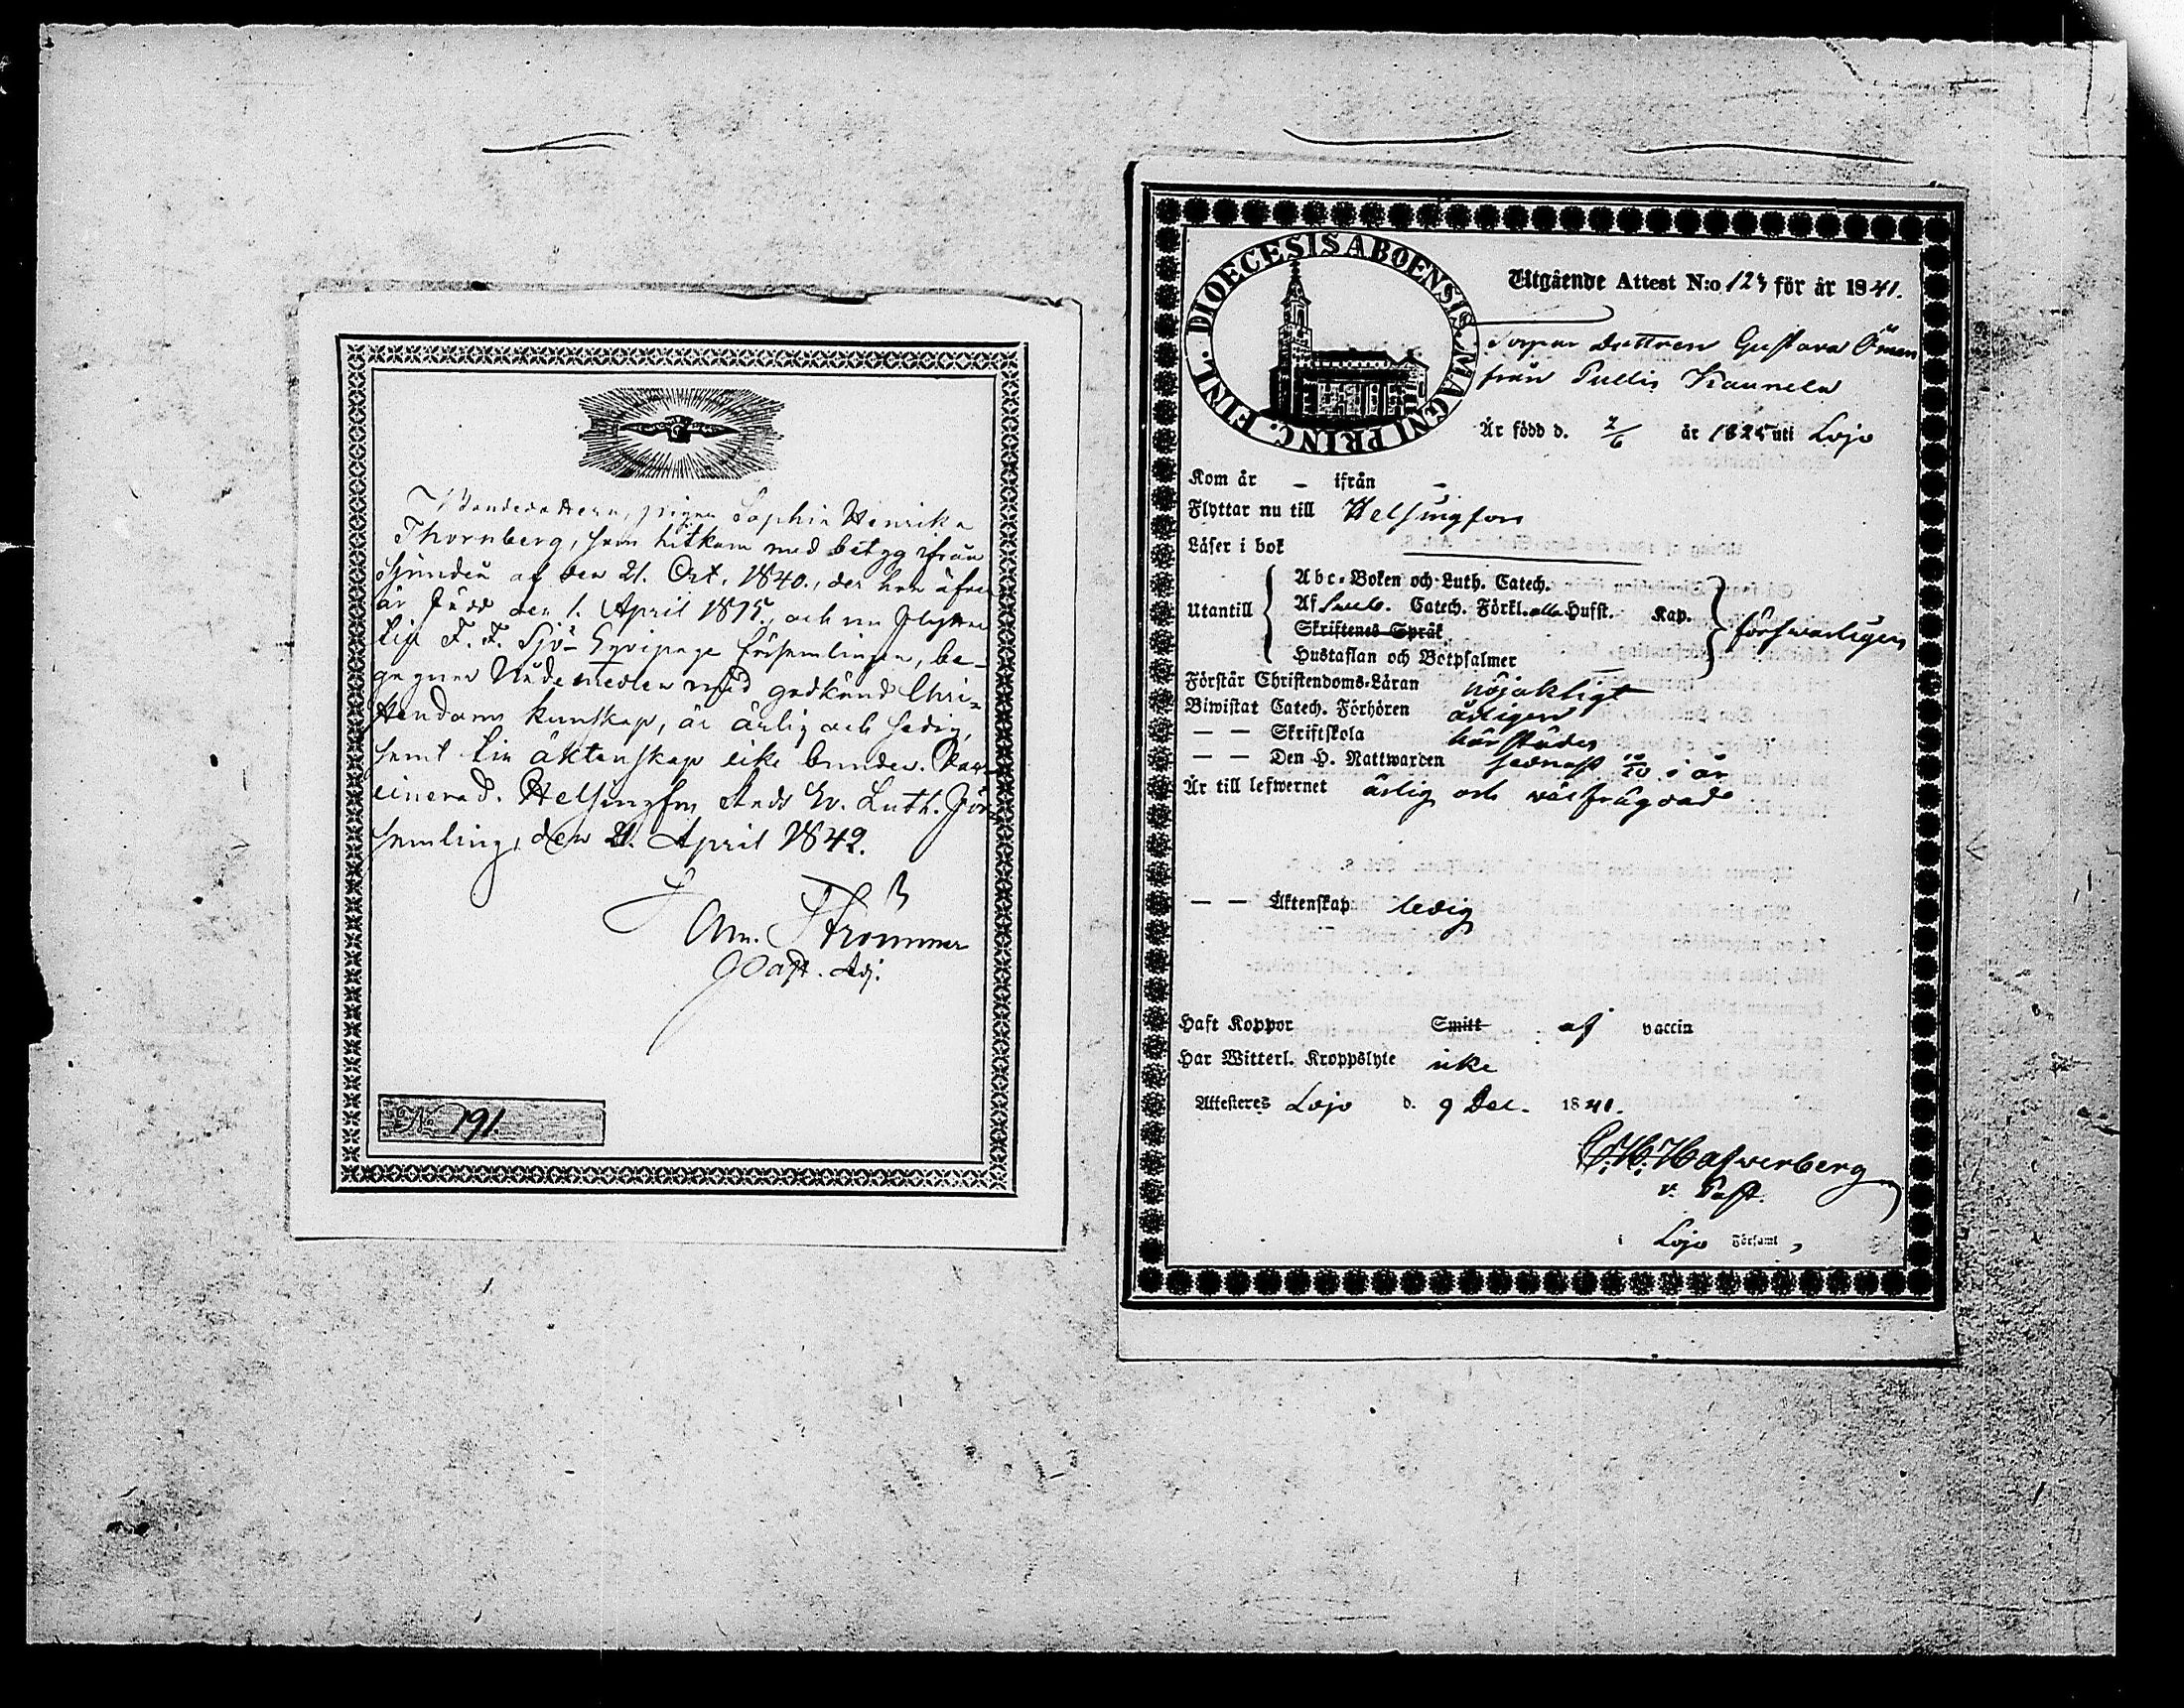 Bondedottern, pigan Sophia Henrika
Thornberg, som hitkom med betyg ifrån
Sjundeå af den 21. Oct. 1840., der hon äfven
är född den 1. April 1815., och nu flyttar
till F. F. Sjö-Equipage församlingen, be-
gagnar Nådemedlen med godkänd Chri-
stendoms kunskap, är ärlig och sedig,
samt till äktenskap icke bunden.
Helsingfors Stads Ev. Luth. För-
samling, den 21. April 1842.
Strömmer
Past. Adj.
No 191.
DIOECESIS ABOENSIS MAGNI PRINC. FINL.
Utgående Attest N:o 123 för år 1841.
Torpar dottren Gustava
från Pullis Kaunela
Är född d. 2/6 år 1825 uti Lojo
Kom år – ifrån –
Flyttar nu till Helsingfors
Läser i bok
Utantill
Abc-Boken och Luth. Catech.
Af Sweb. Catech. Förkl. alla Hufst. Kap.
Skriftenes Språk
Hustaflan och Botpsalmer
försvarligen
Förstår Christendoms-Läran nöjaktigt
Biwistat Catech. Förhören årligen
— — Skriftskola härstädes
— — Den H. Nattwarden sednast 10/10 i år
Är till lefwernet ärlig och välfrägdad
— — Äktenskap ledig
Haft Koppor Smitt af vaccin
Har Witterl. Kroppslyte icke
Attesteres Lojo d. 9 Dec. 1841.
Hafverberg
v. Past.
i Lojo Församl.